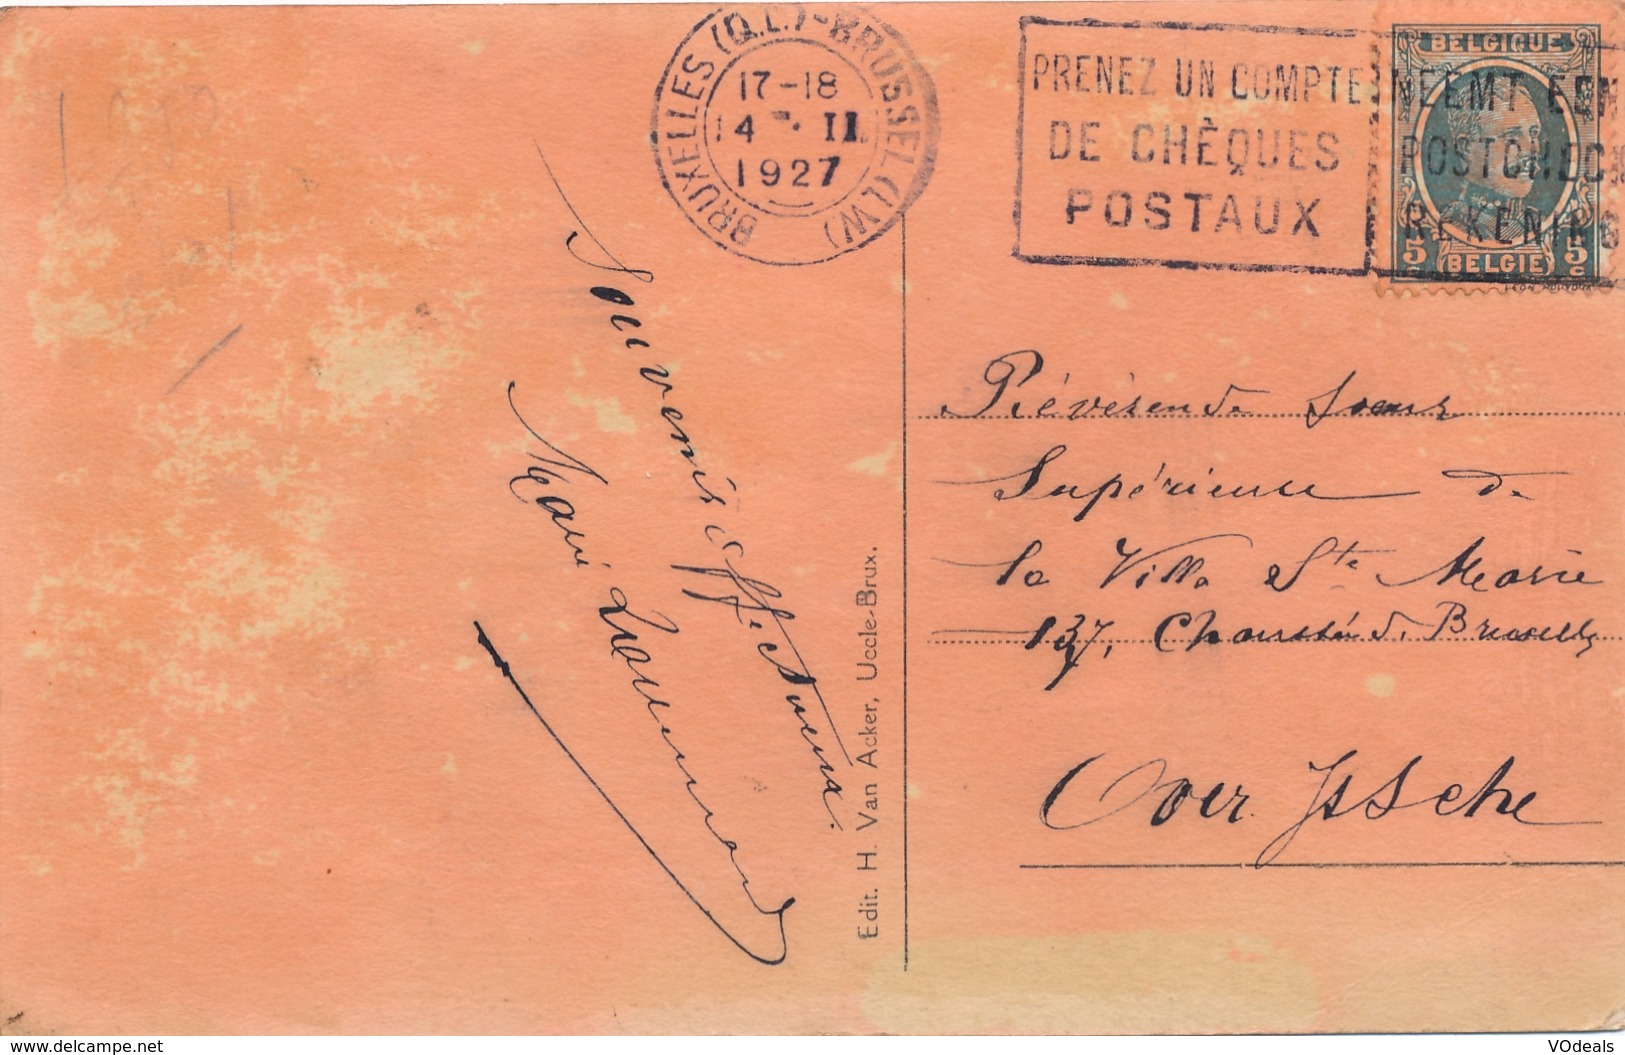 BRUXELLES (Q.L.) - BRUSSEL (L.W)
17-18
14 · II
1927
PRENEZ UN COMPTE
DE CHÈQUES
POSTAUX
NEEMT EEN
POSTCHECK
REKENING
BELGIQUE
5 c
BELGIE
5 c
Souvenirs affectueux.
Marie
Révérende Soeur
Supérieure de
la Villa Ste Marie
137, Chaussée d. Bruxelles
Over Yssche
Edit. H. Van Acker, Uccle-Brux.
www.delcampe.net
VOdeals